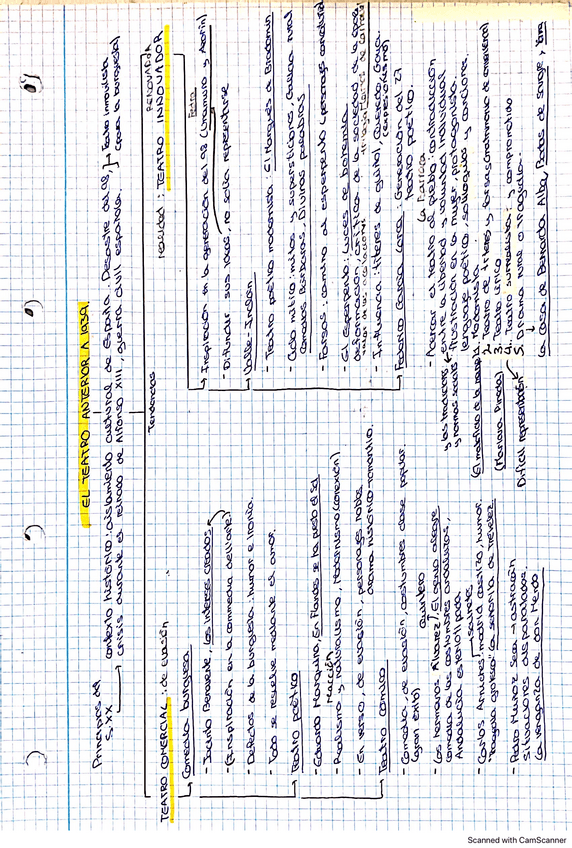 EL TEATRO ANTERIOR A 1939.
Principios del S.XX
contexto histórico: aislamiento cultural de España. Desastre del 98,
crisis durante el reinado de Alfonso XIII, guerra civil española.
Teatro inmovilista
(para la burguesía)
Tendencias
TEATRO COMERCIAL: de evasión
Comedia burguesa
- Jacinto Benavente, Los intereses creados
(Inspiración en la commedia dell'arte)
- Defectos de la burguesía: humor e ironía.
- Todo se resuelve mediante el amor.
Teatro poético
- Eduardo Marquina, En Flandes se ha puesto el sol
- Realismo y naturalismo, Modernismo (conexión)
- En verso, de evasión, personajes nobles
drama histórico-romántico.
Teatro cómico
- Comedia de evasión, costumbres clase popular.
(gran éxito)
Quintero
- Los hermanos Álvarez, El genio alegre
comedia de las costumbres andaluzas,
Andalucía estereotipada
- Carlos Arniches
sainetes
madrid castizo, humor.
"tragedia grotesca" La señorita de Trevélez
- Pedro Muñoz Seca → astracán
situaciones disparatadas.
La venganza de don Mendo
RENOVADOR
necesidad: TEATRO INNOVADOR
Inspiración en la generación del 98 (Unamuno y Azorín)
- Difundir sus ideas, no solía representarse
Valle-Inclán
- Teatro poético modernista: El Marqués de Bradomín
- Ciclo mítico: mitos y supersticiones, Galicia rural
Comedias Bárbaras, Divinas palabras
- Farsas: camino al esperpento
- El esperpento: Luces de bohemia
deformación, crítica de la sociedad de la época
- Influencia: títeres de guiñol, Quevedo, Goya.
(expresionismo)
Federico García Lorca: Generación del 27
teatro poético.
La Barraca
- Acercar el teatro al pueblo, contradicción
entre la libertad y voluntad individual
y las tradiciones y normas sociales
frustración en la mujer, protagonista.
lenguaje poético, soliloquios y canciones.
1. Modernista
2. Teatro de títeres y farsas
3. Teatro lírico
(Mariana Pineda)
4. Teatro surrealista y comprometido
Difícil representación
5. Drama rural o tragedias.
La casa de Bernarda Alba, Bodas de sangre y Yerma
Scanned with CamScanner